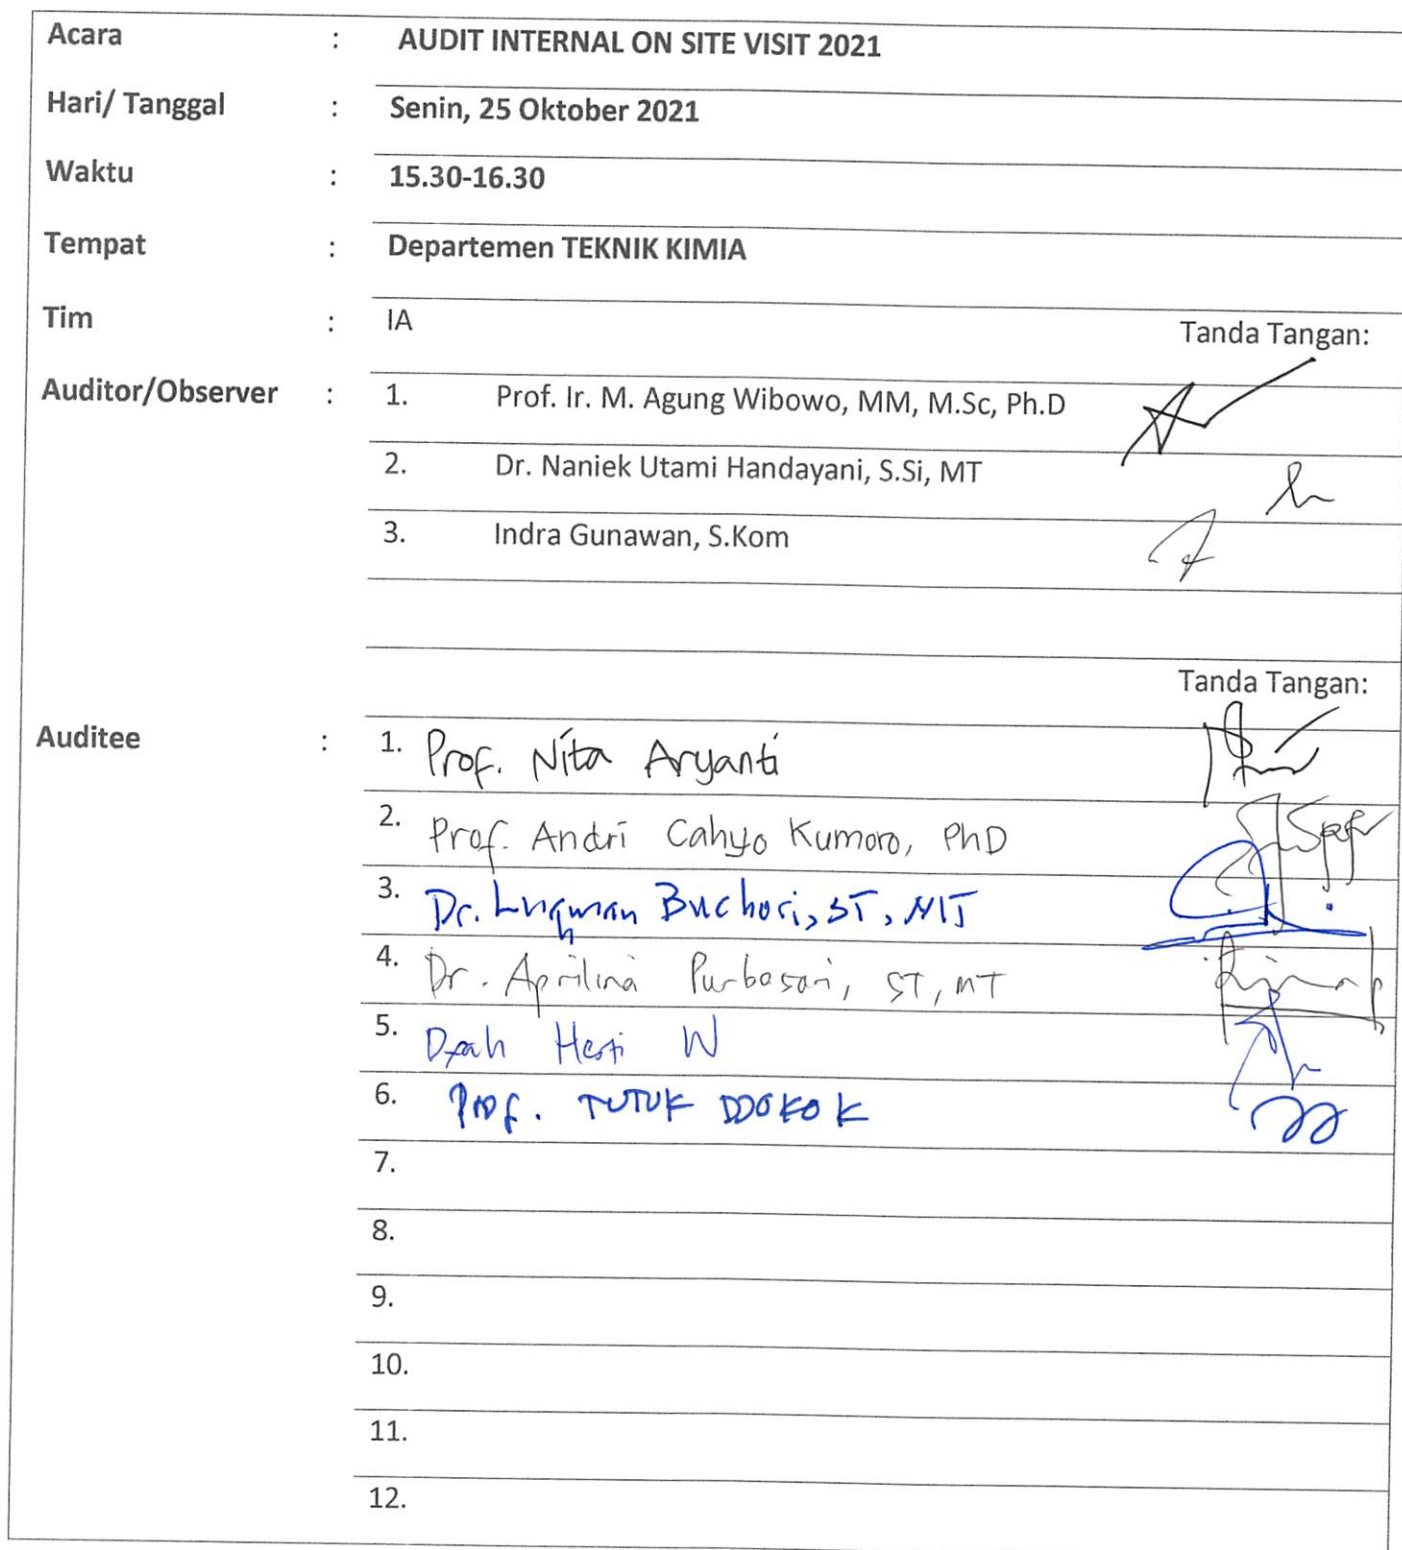 Acara : AUDIT INTERNAL ON SITE VISIT 2021
Hari/ Tanggal : Senin, 25 Oktober 2021
Waktu : 15.30-16.30
Tempat : Departemen TEKNIK KIMIA
Tim : IA Tanda Tangan:
Auditor/Observer : 1. Prof. Ir. M. Agung Wibowo, MM, M.Sc, Ph.D
2. Dr. Naniek Utami Handayani, S.Si, MT
3. Indra Gunawan, S.Kom
Tanda Tangan:
Auditee : 1. Prof. Nita Aryanti
2. Prof. Andri Cahyo Kumoro, PhD
3. Dr. Luqman Buchori, ST, MT
4. Dr. Aprilina Purbasari, ST, MT
5. Dyah Hesti W
6. Prof. TUTUK DJOKO K
7.
8.
9.
10.
11.
12.